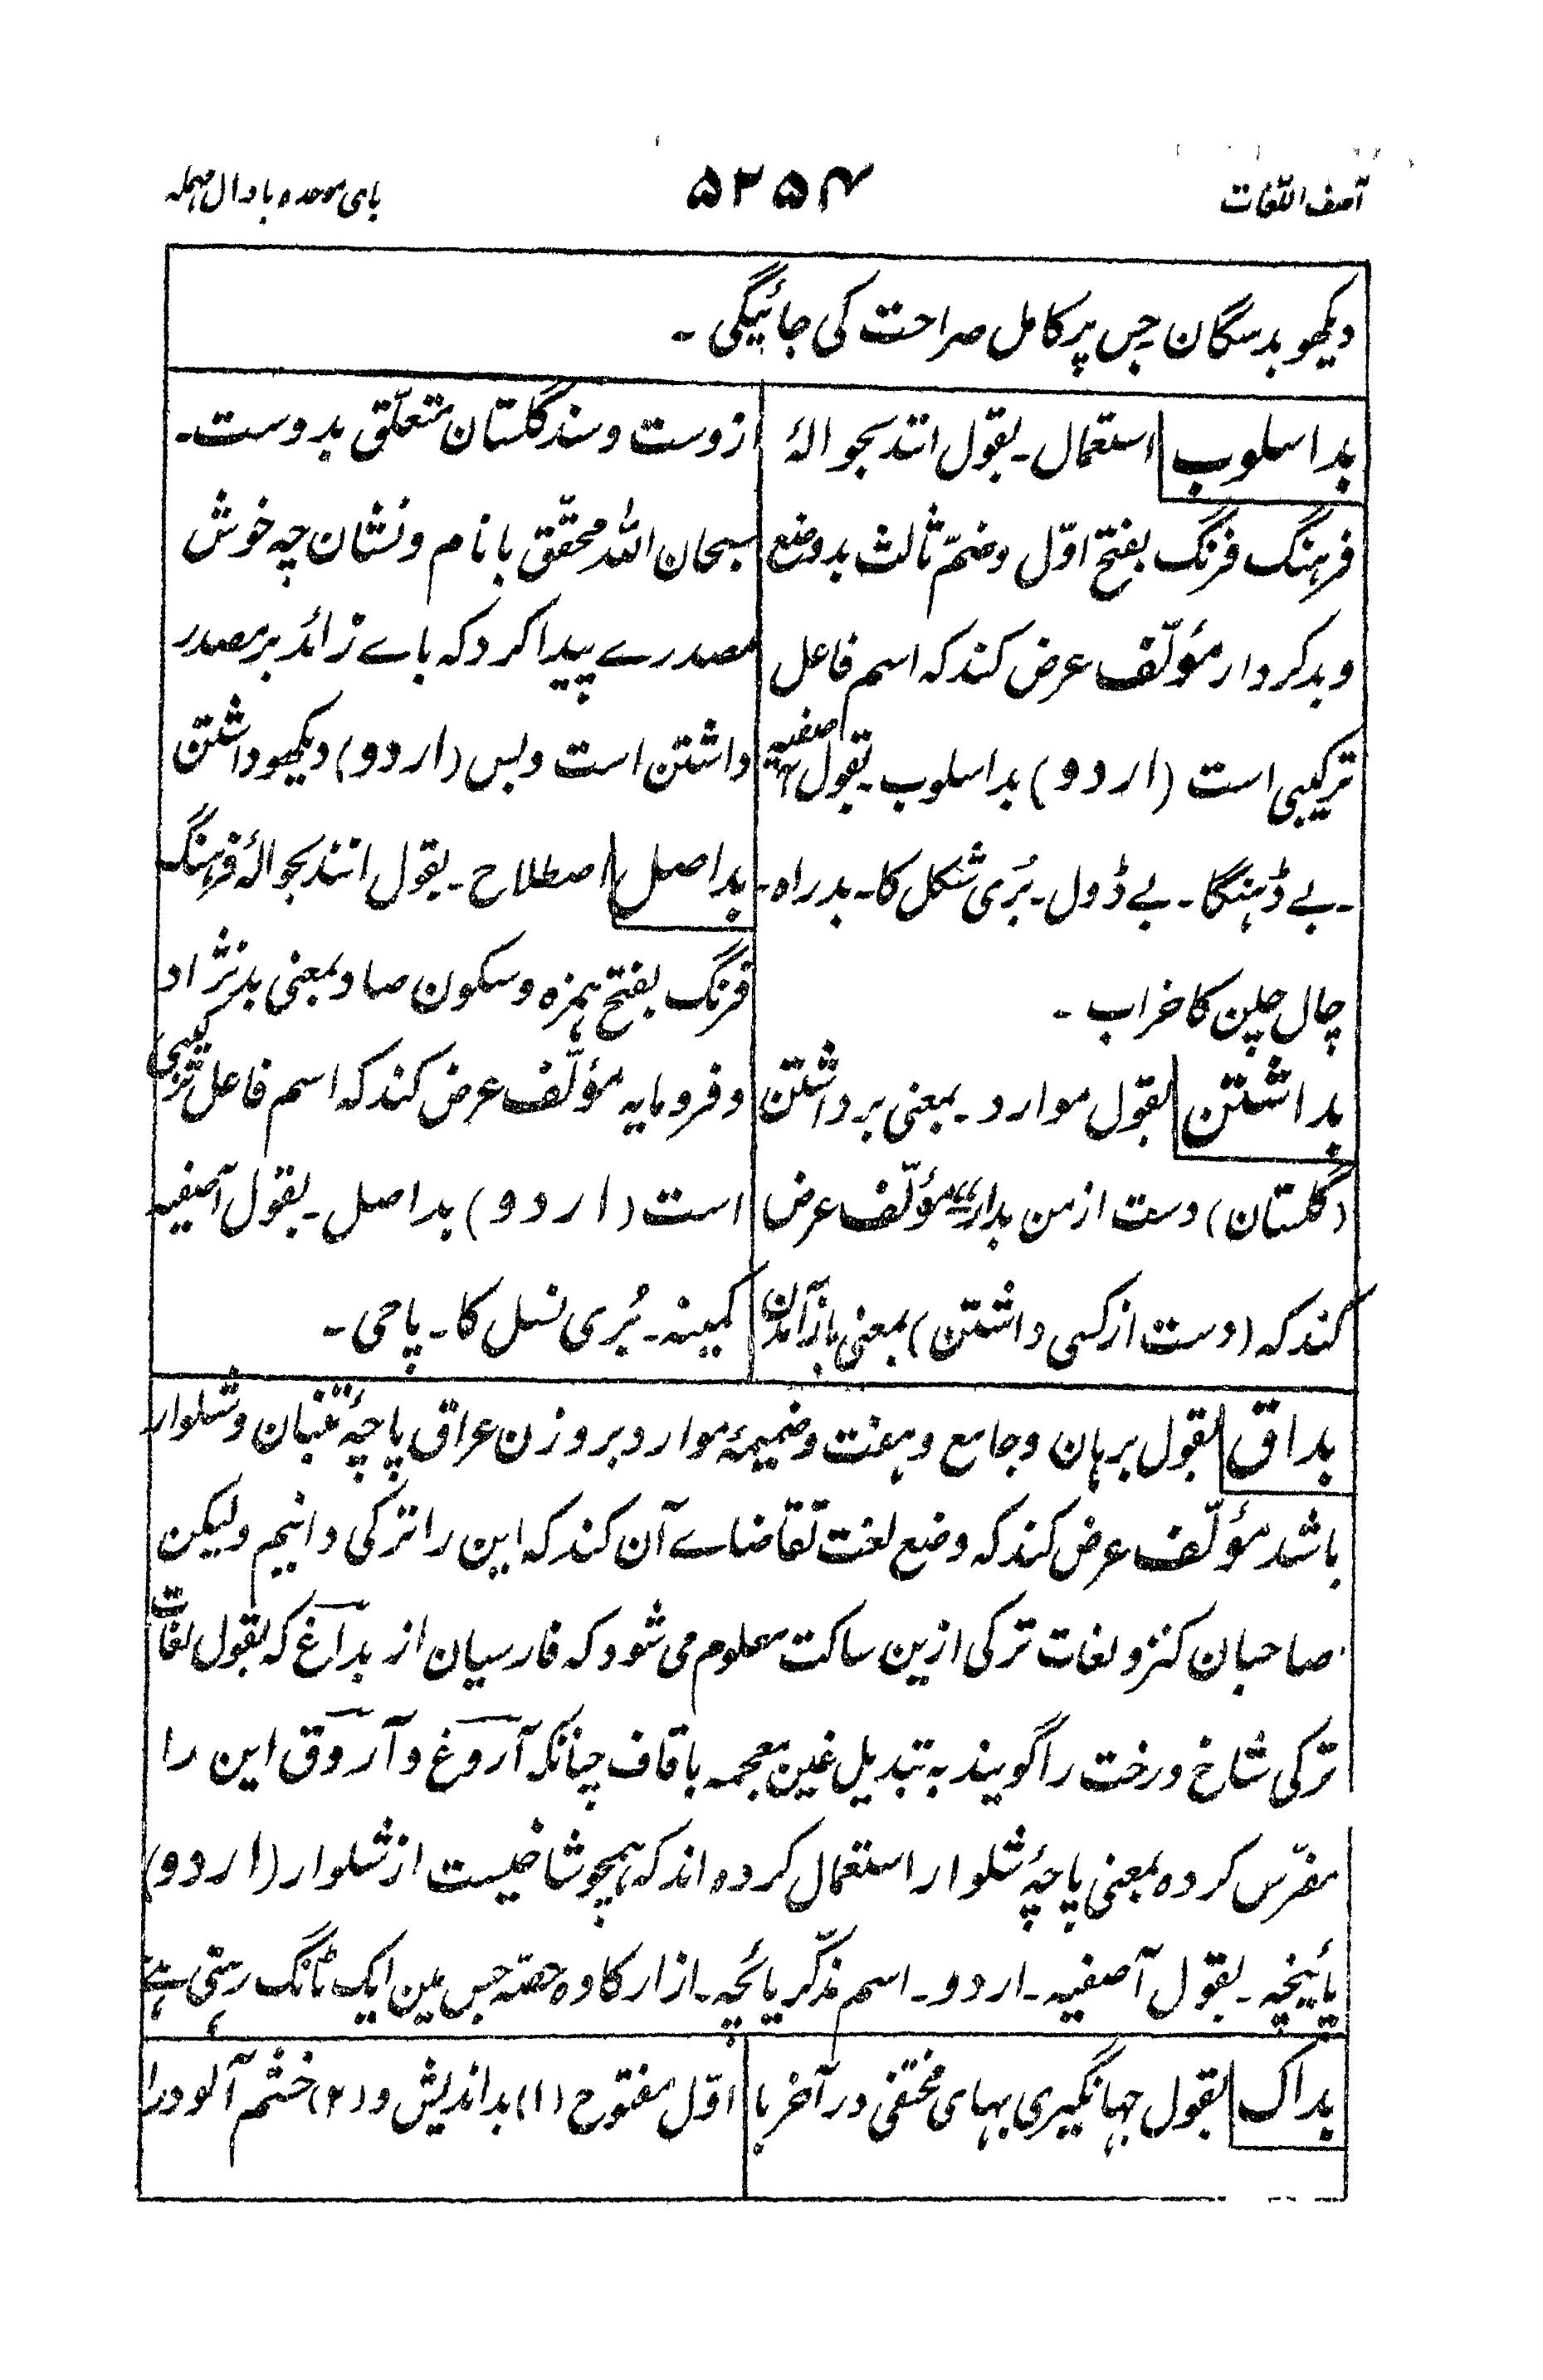 آصف اللغات
۵۲۵۴
بای موحده با دال مهمله
دیکھو بدسگان جس پر کامل صراحت کی جائیگی ۔
بداسلوب استعمال ۔ بقول انند بحوالۂ
فرہنگ فرنگ بفتح اوّل وضمّ ثالث بدوضع
و بدکردار مؤلّف عرض کند کہ اسم فاعل
ترکیبی است (اردو) بداسلوب ۔ بقول آصفیہ
۔ بے ڈہنگا ۔ بے ڈول ۔ بُری شکل کا ۔ بدراہ ۔
چال چلن کا خراب ۔
بداشتن بقول موارد ۔ بمعنی برداشتن
(گلستان) دست از من بدار؎ مؤلّف عرض
کند کہ (دست از کسی داشتن) بمعنی باز آمدن
از وست و سند گلستان متعلّق بدوست ۔
سبحان اللہ محقّق با نام و نشان چہ خوش
مصدرے پیدا کرد کہ باے زائد بر مصدر
داشتن است و بس (اردو) دیکھو داشتن
بداصل اصطلاح ۔ بقول انند بحوالۂ فرہنگ
فرنگ بفتح ہمزہ و سکون صاد بمعنی بدنژاد
و فرومایہ مؤلّف عرض کند کہ اسم فاعل ترکیبی
است (اردو) بداصل ۔ بقول آصفیہ
کمینہ ۔ بُری نسل کا ۔ پاجی ۔
بداق بقول برہان و جامع و ہفت و ضمیمۂ موارد بروزن عراق پاچۂ تنبان و شلوار
باشد مؤلّف عرض کند کہ وضع لغت تقاضاے آن کند کہ این را ترکی دانیم ولیکن
صاحبان کنز و لغات ترکی ازین ساکت معلوم می شود کہ فارسیان از بداغ کہ بقول لغات
ترکی شاخ درخت را گویند بہ تبدیل غین معجمہ با قاف چنانکہ آروغ و آروق این را
مفرّس کردہ بمعنی پاچۂ شلوار استعمال کردہ اند کہ ہمچو شاخیست از شلوار (اردو)
پائینچہ ۔ بقول آصفیہ ۔ اردو ۔ اسم مذکّر پائچہ ۔ ازار کا وہ حصّہ جس مین ایک ٹانگ رہتی ہے
بداک بقول جہانگیری بہای مختفی در آخر با
اوّل مفتوح (۱) بداندیش و (۲) خشم آلود را